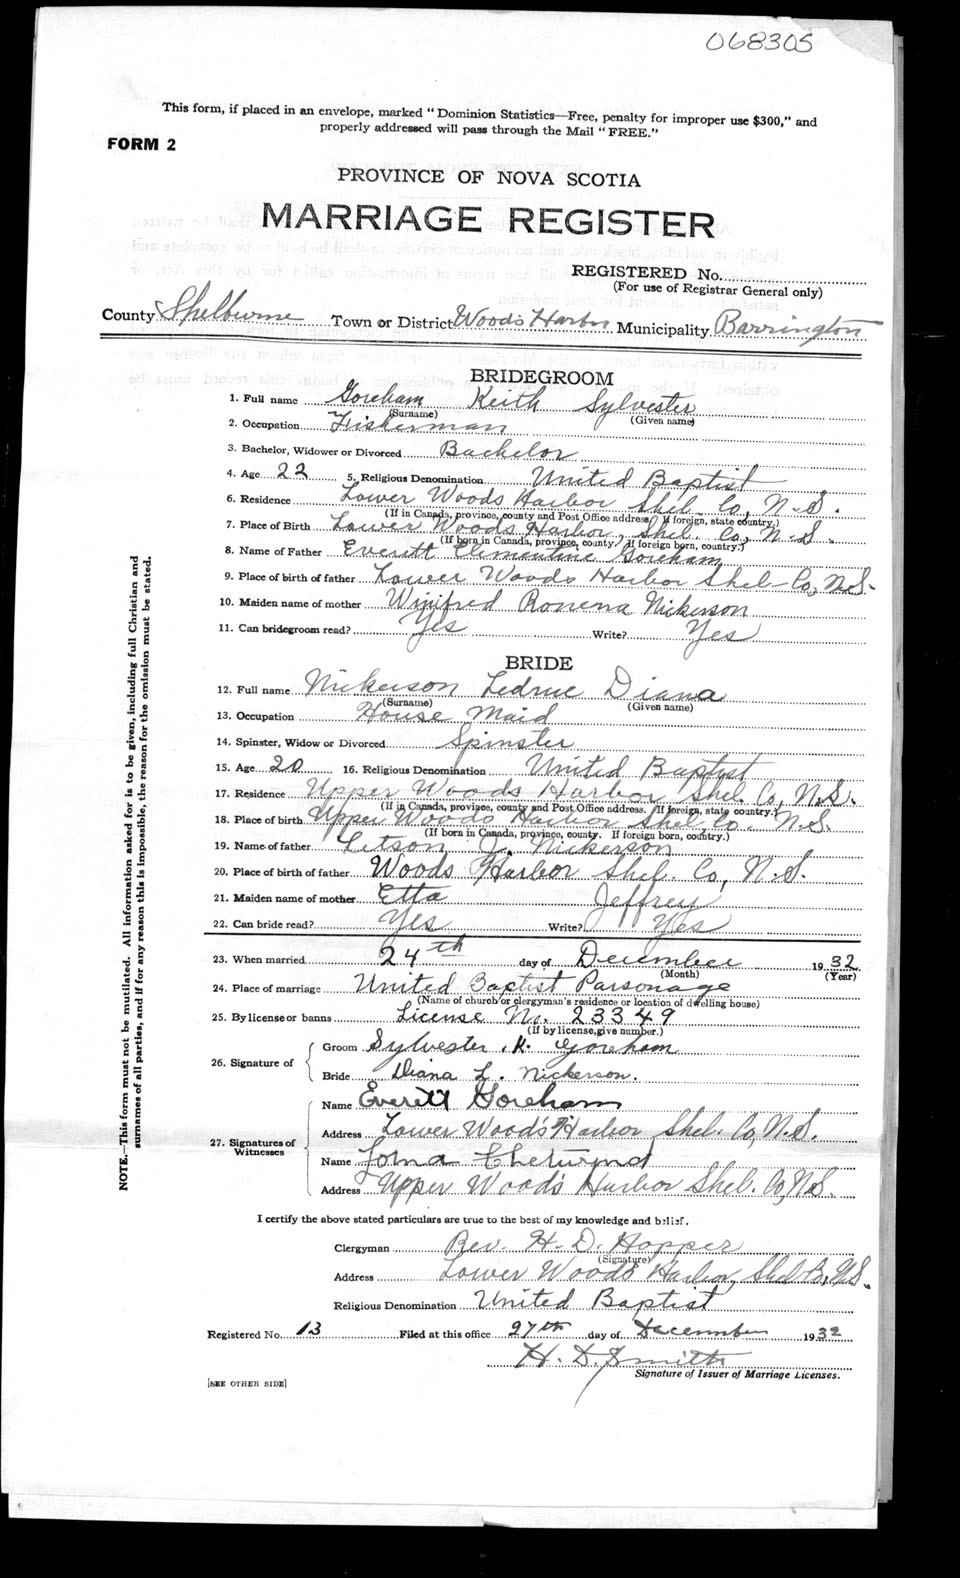 068305
This form, if placed in an envelope, marked "Dominion Statistics—Free, penalty for improper use $300," and
properly addressed will pass through the Mail "FREE."
FORM 2
PROVINCE OF NOVA SCOTIA
MARRIAGE REGISTER
REGISTERED No.
(For use of Registrar General only)
County Shelburne Town or District Woods Harbor Municipality Barrington
BRIDEGROOM
1. Full name Goreham Keith Sylvester
(Surname) (Given name)
2. Occupation Fisherman
3. Bachelor, Widower or Divorced Bachelor
4. Age 22 5. Religious Denomination United Baptist
6. Residence Lower Woods Harbor Shel. Co, N.S.
(If in Canada, province, county and Post Office address. If foreign, state country.)
7. Place of Birth Lower Woods Harbor, Shel. Co, N.S.
(If born in Canada, province, county. If foreign born, country.)
8. Name of Father Everett Clementine Goreham
9. Place of birth of father Lower Woods Harbor Shel-Co, N.S-
10. Maiden name of mother Winifred Ronena Nickerson
11. Can bridegroom read? Yes Write? Yes
BRIDE
12. Full name Nickerson Ledrue Diana
(Surname) (Given name)
13. Occupation House Maid
14. Spinster, Widow or Divorced Spinster
15. Age 20 16. Religious Denomination United Baptist
17. Residence Upper Woods Harbor Shel. Co, N.S.
(If in Canada, province, county and Post Office address. If foreign, state country.)
18. Place of birth Upper Woods Harbor Shel. Co. N.S.
(If born in Canada, province, county. If foreign born, country.)
19. Name of father Letson J. Nickerson
20. Place of birth of father Woods Harbor Shel. Co, N.S.
21. Maiden name of mother Etta Jeffrey
22. Can bride read? Yes Write? Yes
23. When married 24th day of December 1932
(Month) (Year)
24. Place of marriage United Baptist Parsonage
(Name of church or clergyman's residence or location of dwelling house)
25. By license or banns License No. 23349
(If by license, give number.)
26. Signature of Groom Sylvester K. Goreham
Bride Diana L. Nickerson.
27. Signatures of Witnesses Name Everett Goreham
Address Lower Wood's Harbor Shel. Co, N.S.
Name Lorna Chetwynd
Address Upper Wood's Harbor Shel. Co, N.S.
I certify the above stated particulars are true to the best of my knowledge and belief.
Clergyman Rev. H. D. Hopper
(Signature)
Address Lower Woods Harbor, Shel Co, N.S.
Religious Denomination United Baptist
Registered No. 13 Filed at this office 27th day of December 1932
H. D. Smith
Signature of Issuer of Marriage Licenses.
[SEE OTHER SIDE]
NOTE.—This form must not be mutilated. All information asked for is to be given, including full Christian and
surnames of all parties, and if for any reason this is impossible, the reason for the omission must be stated.